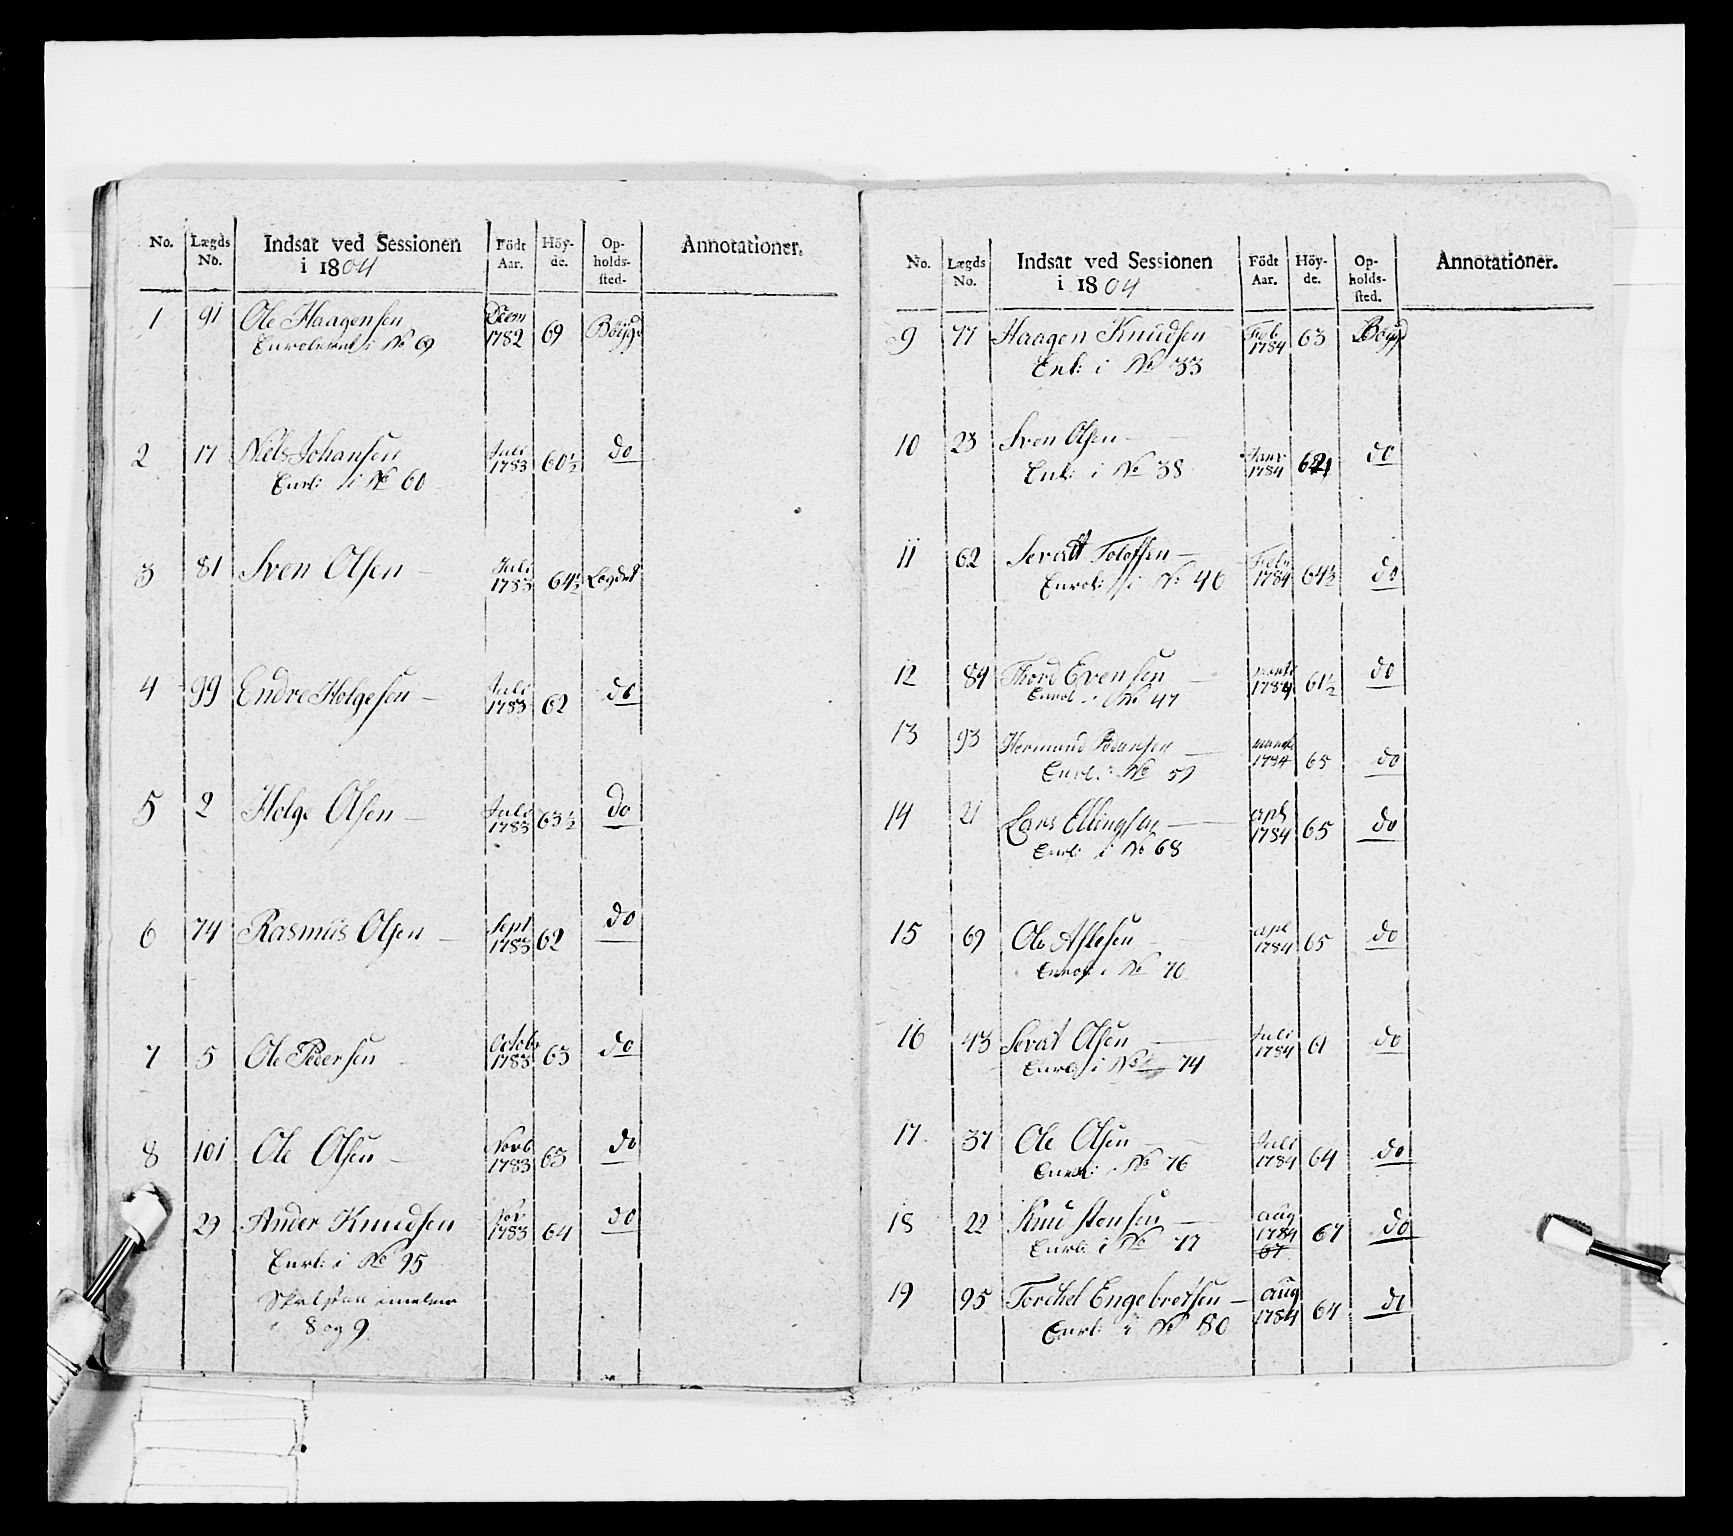 No. Lægds No. Indsat ved Sessionen i 1804 Födt Aar. Höy-de. Op-holds-sted. Annotationer.
1 91 Ole Haagensen Decm 1782 69 Böygd
Enrolleret i No 69
2 17 Niels Johansen Juli 1783 60½ do
Enrl: i No 60
3 81 Sven Olsen – Juli 1783 64½ Lægdet
4 99 Endre Holgesen – Juli 1783 62 do
5 2 Holge Olsen – Juli 1783 63½ do
6 74 Rasmus Olsen – Sept 1783 62 do
7 5 Ole Pedersen Octob 1783 63 do
8 101 Ole Olsen – Novb 1783 63 do
29 Ander Knudsen Nov 1783 64 do
Enrl: i No 95
8 og 9
No. Lægds No. Indsat ved Sessionen i 1804 Födt Aar. Höy-de. Op-holds-sted. Annotationer.
9 77 Haagen Knudsen Feb: 1784 63 Böygd
Enl: i No 33
10 23 Sven Olsen – Janv 1784 do
Enl: i No 38
11 62 Sevatt Tolofsen – Feb 1784 64½ do
Enrol: i No 46
12 84 Thord Evensen – 1784 61½ do
Enrol: i No 47
13 93 Hermand – 1784 65 do
Enrl: No 59
14 21 Lars Ellingsen – apl 1784 65 do
Enrl: i No 68
15 69 Ole Aslesen – apl 1784 65 do
Enrol: i No 70
16 43 Sevat Olsen – Juli 1784 61 do
Enrl: i No 74
17 37 Ole Olsen – Juli 1784 64 do
Enrl: i No 76
18 22 Knud Stensen – aug 1784 67 67 do
Enrl: i No 77
19 95 Torchel Engebretsen – aug 1784 64 do
Enrl: i No 80